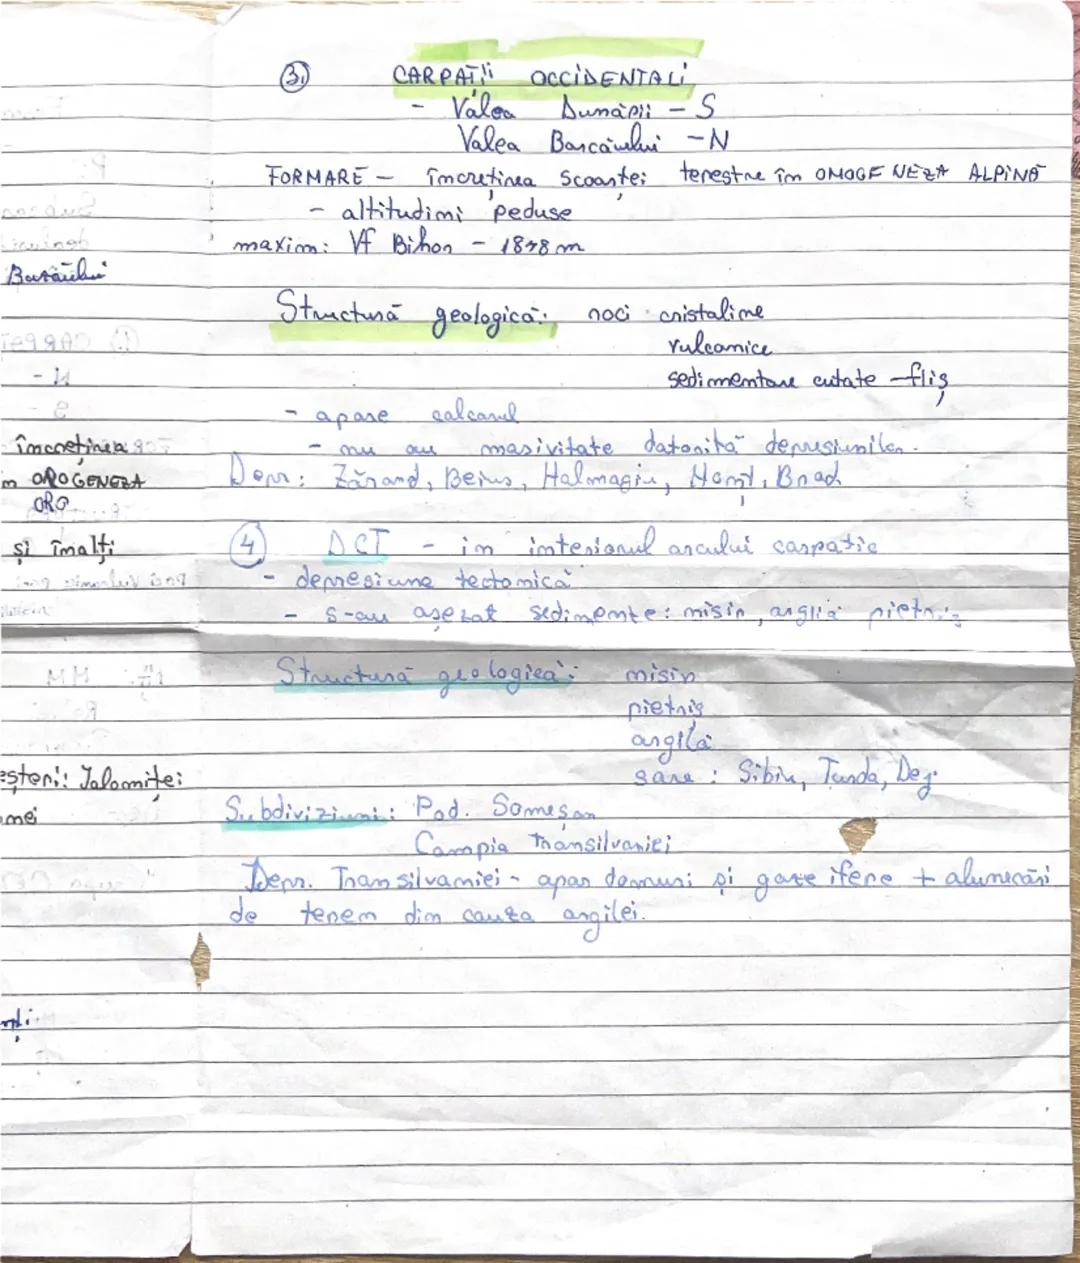 3.
CARPAȚII OCCIDENTALI
- Valea Dunării - S
Valea Barcăului - N
FORMARE - încrețirea scoarței terestre în OROGENEZA ALPINĂ
- altitudini reduse
maxim: Vf Bihor - 1848 m
Barcăului
Structură geologică: roci cristaline
vulcanice
sedimentare cutate - fliș
- apare calcarul
- nu au masivitate datorită depresiunilor.
Depr: Zărand, Beiuș, Halmagiu, Brad
încrețirea
în OROGENEZA
ORO
și înalți
4 DCT - în interiorul arcului carpatic
- depresiune tectonică
- s-au așezat sedimente: nisip, argilă pietriș
Structură geologică: nisip
pietriș
argilă
sare: Sibiu, Turda, Dej
Ialomiței
Subdiviziuni: Pod. Someșan
Campia Transilvaniei
Depr. Transilvaniei - apar domuri și gaze ifere + alunecări
de teren din cauza argilei.